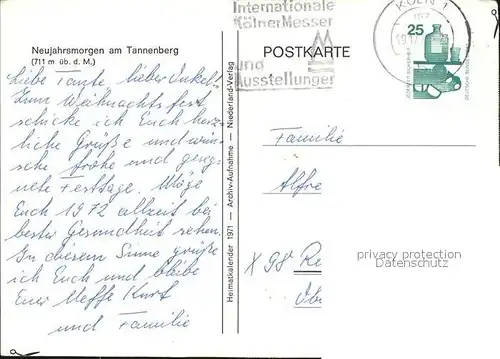 Neujahrsmorgen am Tannenberg
(711 m üb. d. M.)
Liebe Tante, lieber Onkel!
Zum Weihnachtsfest
schicke ich Euch herz-
liche Grüße und wün-
sche frohe und geseg-
nete Festtage. Möge
Euch 1972 allzeit bei
bester Gesundheit sehen.
In diesem Sinne grüße
ich Euch und bleibe
Euer Neffe Kurt
und Familie
Heimatkalender 1971 — Archiv-Aufnahme — Niederland-Verlag
Internationale
Kölner Messen
und
Ausstellungen
POSTKARTE
KÖLN 1
25
DEUTSCHE BUNDESPOST
Familie
Alfre
X 98 Re
privacy protection
Datenschutz